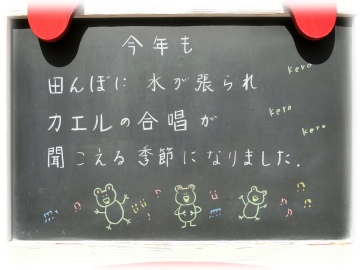 今年も
田んぼに 水が張られ
カエルの合唱が
聞こえる季節になりました.
kero
kero
kero